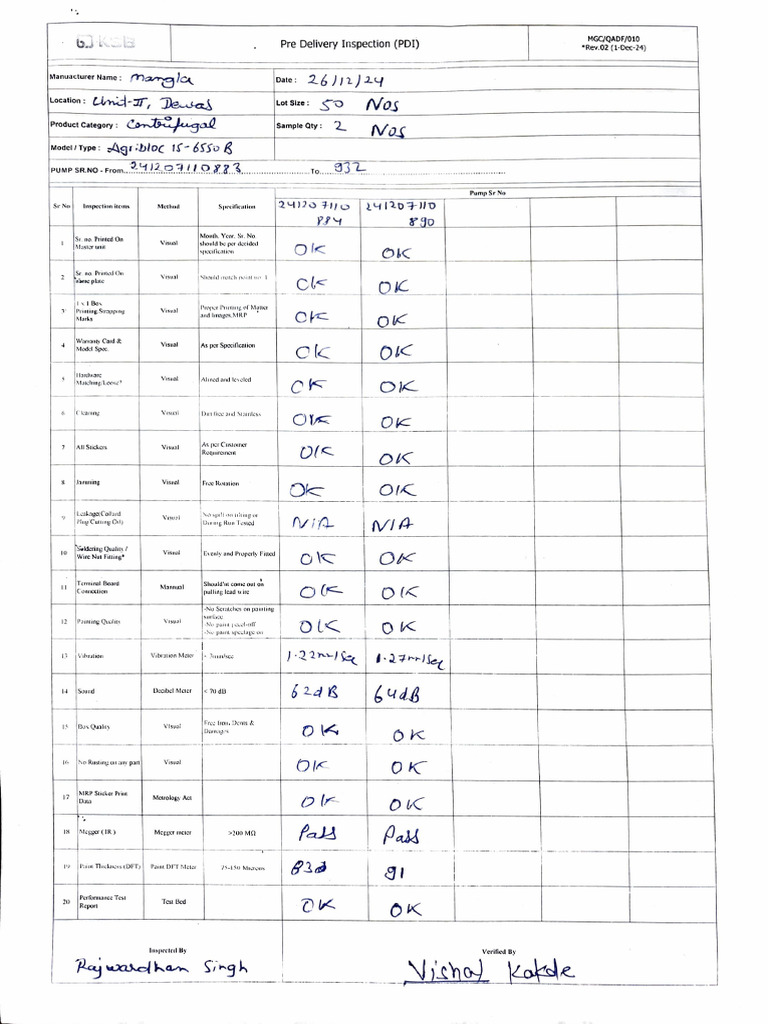 KSB
Pre Delivery Inspection (PDI)
MGC/QADF/010
*Rev.02 (1-Dec-24)
Manuacturer Name : Mangla
Date : 26/12/24
Location : Unit-II, Dewas
Lot Size : 50 Nos
Product Category : Centrifugal
Sample Qty : 2 Nos
Model / Type : Agribloc 15-6550B
PUMP SR.NO - From 241207110883 To 932
Pump Sr No
Sr No Inspection items Method Specification 241207110884 241207110890
1 Sr. no. Printed On Master unit Visual Month, Year, Sr. No should be per decided specification OK OK
2 Sr. no. Printed On name plate Visual Should match point no. 1 OK OK
3 1 x 1 Box Printing/Strapping Marks Visual Proper Printing of Matter and Images,MRP OK OK
4 Warranty Card & Model Spec. Visual As per Specification OK OK
5 Hardware Matching/Loose* Visual Alined and leveled OK OK
6 Cleaning Visual Dust free and Stainless OK OK
7 All Stickers Visual As per Customer Requirement OK OK
8 Jamming Visual Free Rotation OK OK
9 Leakage Visual During Run Tested N/A N/A
10 Soldering Quality / Wire Nut Fitting* Visual Evenly and Properly Fitted OK OK
11 Terminal Board Connection Mannual Should'nt come out on pulling lead wire OK OK
12 Painting Quality Visual -No Scratches on painting surface -No paint peel-off -No paint OK OK
13 Vibration Vibration Meter 1.22m/Sec 1.27m/Sec
14 Sound Decibel Meter < 70 dB 62dB 64dB
15 Box Quality Visual Free from, Dents & Damages OK OK
16 No Rusting on any part Visual OK OK
17 MRP Sticker Print Data Metrology Act OK OK
18 Megger ( IR ) Megger meter >200 MΩ Pass Pass
19 Paint Thickness (DFT) Paint DFT Meter 75-150 Microns 91
20 Performance Test Report Test Bed OK OK
Inspected By
Verified By
Rajwardhan Singh
Vishal Kakde